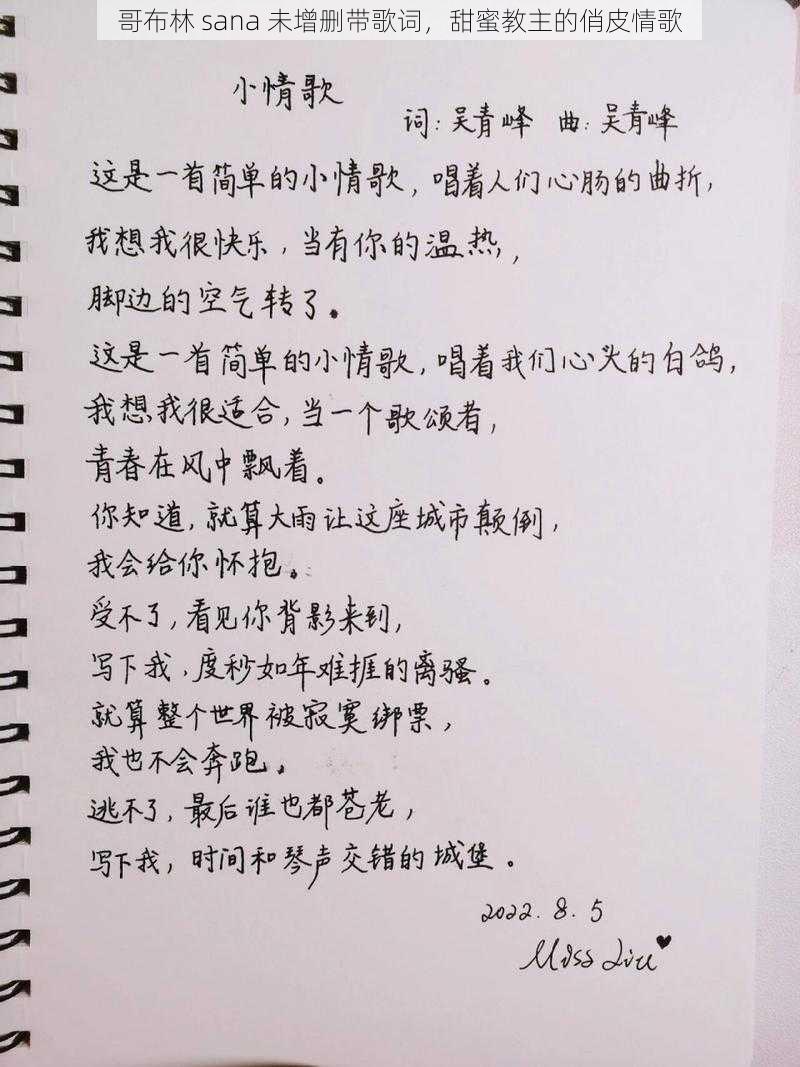 哥布林 sana 未增删带歌词，甜蜜教主的俏皮情歌
小情歌
词：吴青峰 曲：吴青峰
这是一首简单的小情歌，唱着人们心肠的曲折，
我想我很快乐，当有你的温热，
脚边的空气转了。
这是一首简单的小情歌，唱着我们心头的白鸽，
我想我很适合，当一个歌颂者，
青春在风中飘着。
你知道，就算大雨让这座城市颠倒，
我会给你怀抱。
受不了，看见你背影来到，
写下我，度秒如年难捱的离骚。
就算整个世界被寂寞绑票，
我也不会奔跑。
逃不了，最后谁也都苍老，
写下我，时间和琴声交错的城堡。
2022.8.5
Miss Liu